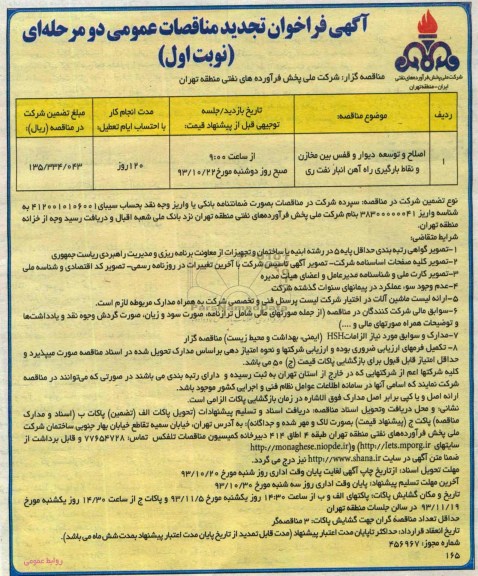 آگهی فراخوان تجدید مناقصات عمومی دو مرحله‌ای
(نوبت اول)
شرکت ملی پخش فرآورده‌های نفتی
ایران - منطقه تهران
مناقصه گزار: شرکت ملی پخش فرآورده های نفتی منطقه تهران
ردیف
موضوع مناقصه:
تاریخ بازدید/جلسه
توجیهی قبل از پیشنهاد قیمت:
مدت انجام کار
با احتساب ایام تعطیل:
مبلغ تضمین شرکت
در مناقصه (ریال):
۱
اصلاح و توسعه دیوار و فنس بین مخازن
و نقاط بارگیری راه آهن انبار نفت ری
از ساعت ۹:۰۰
صبح روز دوشنبه مورخ ۹۳/۱۰/۲۲
۱۲۰روز
۱۳۵/۳۳۴/۰۴۳
نوع تضمین شرکت در مناقصه: سپرده شرکت در مناقصات بصورت ضمانتنامه بانکی یا واریز وجه نقد بحساب سیبای۴۱۲۰۰۱۰۱۰۶۰۰۱ به
شناسه واریز ۳۸۳۰۰۰۰۰۰۴۱ بنام شرکت ملی پخش فرآورده‌های نفتی منطقه تهران نزد بانک ملی شعبه اقبال و دریافت رسید وجه از خزانه
منطقه تهران.
شرایط متقاضی:
۱-تصویر گواهی رتبه بندی حداقل پایه ۵ در رشته ابنیه یا ساختمان و تجهیزات از معاونت برنامه ریزی و مدیریت راهبردی ریاست جمهوری
۲-تصویر کلیه صفحات اساسنامه شرکت- تصویر آگهی تاسیس شرکت با آخرین تغییرات در روزنامه رسمی- تصویر کد اقتصادی و شناسه ملی
۳-تصویر کارت ملی و شناسنامه مدیرعامل و اعضای هیات مدیره
۴-عدم وجود سوء عملکرد در پیمانهای سنوات گذشته شرکت
۵-ارائه لیست ماشین آلات در اختیار شرکت لیست پرسنل فنی و تخصصی شرکت به همراه مدارک مربوطه لازم است.
۶-سوابق مالی شرکت کنندگان در مناقصه (از جمله صورتهای مالی شامل ترازنامه، صورت سود و زیان، صورت گردش وجوه نقد و یادداشتها
و توضیحات همراه صورتهای مالی و ....)
۷-مدارک و سوابق مورد نیاز الزامات HSE (ایمنی، بهداشت و محیط زیست) مناقصه گزار
۸- تکمیل فرمهای ارزیابی ضروری بوده و ارزیابی شرکتها و نحوه امتیاز دهی براساس مدارک تحویل شده در اسناد مناقصه صورت میپذیرد و
حداقل امتیاز قابل قبول برای بازگشایی پاکات قیمت (ج) ۵۰ می باشد.
کلیه شرکتها اعم از شرکتهایی که در خارج از استان تهران به ثبت رسیده و دارای رتبه بندی می باشند در صورتی که می‌توانند در مناقصه
شرکت نمایند که اسامی آنها در سامانه اطلاعات عوامل نظام فنی و اجرایی کشور موجود باشد.
ارائه اصل و یا کپی برابر اصل مدارک فوق الاشاره در زمان بازگشایی پاکات الزامی است.
نشانی: و محل دریافت وتحویل اسناد مناقصه: دریافت اسناد و تسلیم پیشنهادات (تحویل پاکات الف (تضمین) پاکات ب (اسناد و مدارک
مناقصه) پاکات ج (پیشنهاد قیمت) بصورت لاک و مهر شده و جداگانه): به آدرس تهران، خیابان سمیه تقاطع خیابان بهار جنوبی ساختمان شرکت
ملی پخش فرآورده‌های نفتی منطقه تهران طبقه ۴ اطاق ۴۱۴ دبیرخانه کمیسیون مناقصات تلفکس تماس: ۷۷۶۵۴۷۲۸ و قابل برداشت از
سایتهای http://iets.mporg.ir) و(http://monaghese.niopdc.ir
ضمنا متن آگهی در سایت http://www.shana.ir نیز درج می گردد.
مهلت تحویل اسناد: ازتاریخ چاپ آگهی لغایت پایان وقت اداری روز شنبه مورخ ۹۳/۱۰/۲۰
آخرین مهلت تسلیم پیشنهاد: پایان وقت اداری روز سه شنبه مورخ ۹۳/۱۰/۳۰
تاریخ و مکان گشایش پاکات: پاکتهای الف و ب از ساعت ۱۴:۳۰ روز یکشنبه مورخ ۹۳/۱۱/۵ و پاکات ج از ساعت ۱۴/۳۰ روز یکشنبه مورخ
۹۳/۱۱/۱۹ در سالن جلسات منطقه تهران
حداقل تعداد مناقصه گران جهت گشایش پاکات: ۳ مناقصه‌گر
تاریخ انعقاد قرارداد: حداکثر تاپایان مدت اعتبار پیشنهاد (مدت قابل تمدید از تاریخ پایان مدت اعتبار پیشنهاد بمدت شش ماه می باشد).
شماره مجوز: ۴۵۶۹۶۷
۱۶۵
روابط عمومی